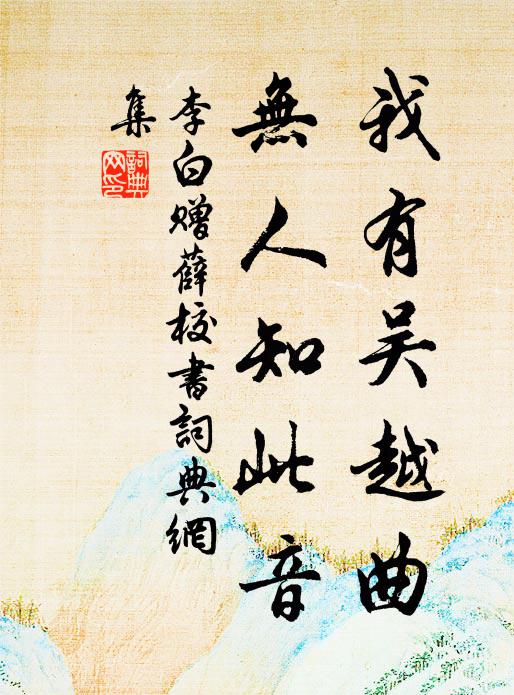 我有吴越曲
無人知此音
李白赠薛校書詞典網
集
詞典
网印